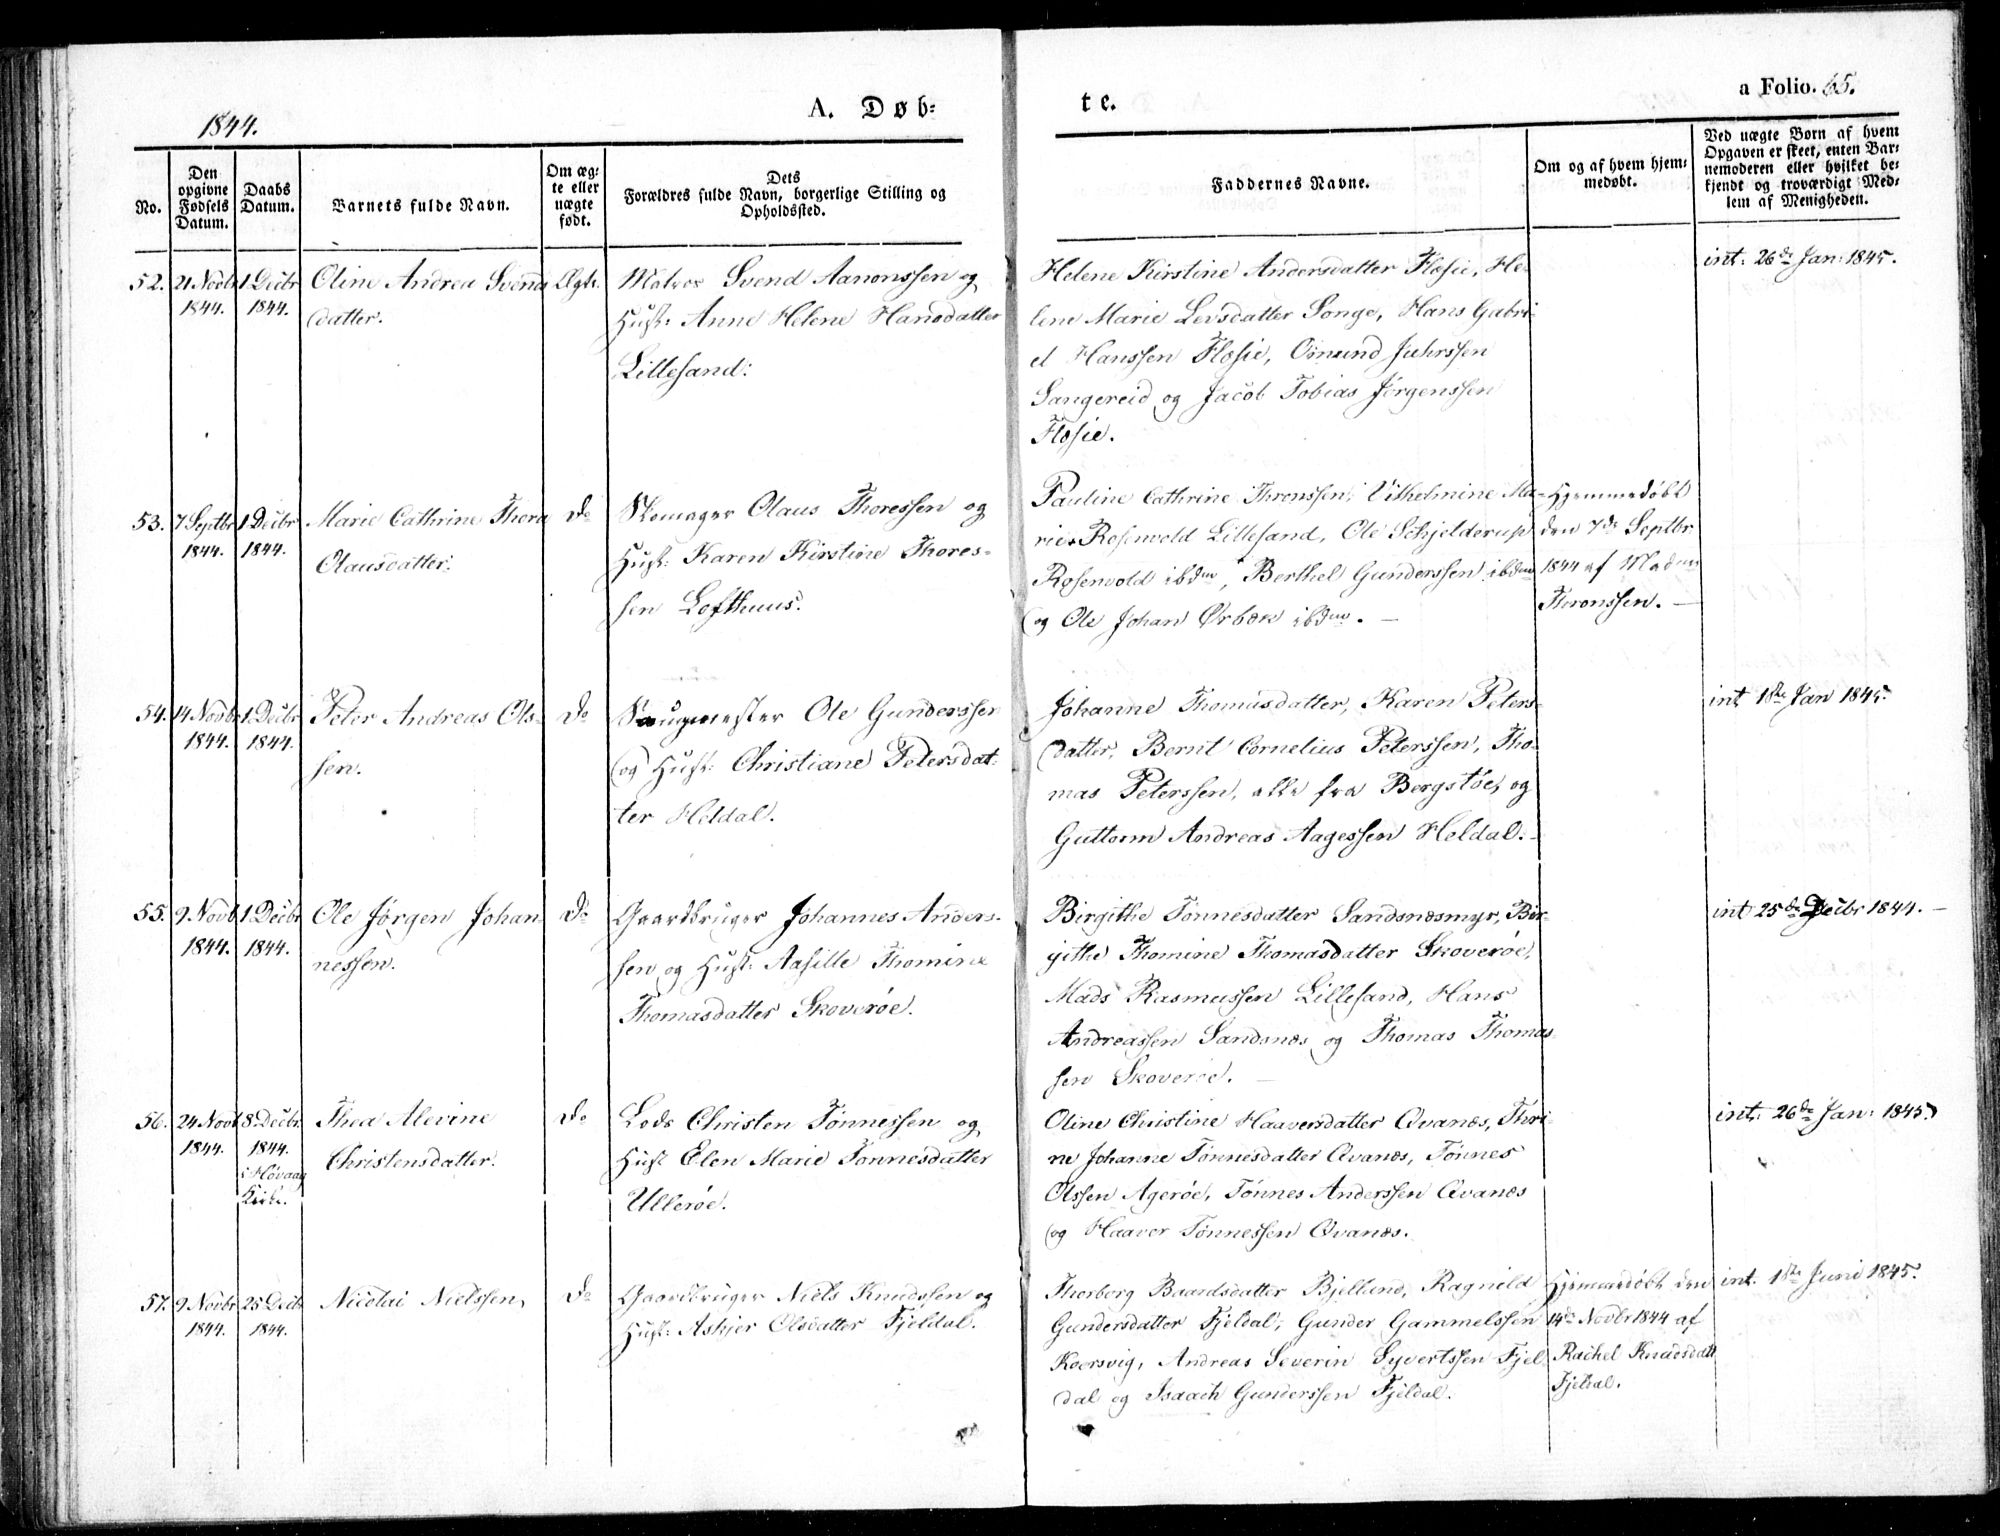 1844.
A. Døb-
te.
a Folio. 65.
No.
Den opgivne Fødsels Datum.
Daabs Datum.
Barnets fulde Navn.
Om ægte eller uægte født.
Dets Forældres fulde Navn, borgerlige Stilling og Opholdssted.
Faddernes Navne.
Om og af hvem hjemmedøbt.
Ved uægte Børn af hvem
Opgaven er skeet, enten Bar-
nemoderen eller hvilket be-
kjendt og troværdigt Med-
lem af Menigheden.
52.
21 Novbr
1844.
1 Decbr
1844.
Oline Andrea Svends
datter.
Ægte.
Matros Svend Aanonssen og
Hust: Anne Helene Hansdatter
Lillesand:
Helene Kirstine Andersdatter Flosie, He-
lene Marie Levsdatter Songe, Hans Gabri-
el Hanssen Flosie, Osmund Juhrssen
Sangereid og Jacob Tobias Jørgenssen
Flosie.
int. 26de Jan: 1845.
53.
7 Septbr
1844.
1 Decbr
1844.
Marie Cathrine Thora
Olausdatter.
Do
Skomager Olaus Thoressen og
Hust: Karen Kirstine Thores-
sen Lofthuus.
Pauline Cathrine Thronssen, Vilhelmine Ma-
rie Rosenvold Lillesand, Ole Schjelderup
Rosenvold ibdm, Berthel Gunderssen ibdm
og Ole Johan Ørbæk ibdm. —
Hjemmedøbt
den 7de Septbr
1844 af Madm
Thronssen. —
54.
14 Novbr
1844.
1 Decbr
1844.
Peter Andreas Ols-
sen.
Do
Saugmester Ole Gunderssen
og Hust: Christiane Petersdat-
ter Heldal.
Johanne Thomasdatter, Karen Peters-
datter, Bernt Cornelius Peterssen, Tho-
mas Peterssen, alle fra Bergstøe, og
Guttorm Andreas Aagessen Heldal. -
int 1ste Jan 1845.
55.
9 Novb
1844.
1 Decbr
1844.
Ole Jørgen Johan
nessen.
Do
Gaardbruger Johannes Anders-
sen og Hust: Aasille Thomine
Thomasdatter Skoverøe.
Birgithe Tønnesdatter Sandsnæsmyr, Bir-
githe Thomine Thomasdatter Skoverøe,
Mads Rasmussen Lillesand, Hans
Andreassen Sandsnæs og Thomas Thomas-
sen Skoverøe. —
int 25de Decbr 1844. —
56.
24 Novb
1844.
8 Decbr
1844.
i Høvaag
Kirke.
Thea Alevine
Christensdatter.
Do
Lods Christen Tønnessen og
Hust Elen Marie Tønnesdatter
Ullerøe.
Oline Christine Haaversdatter Qvanæs, Thri-
ne Johanne Tønnesdatter Qvanæs, Tønnes
Olssen Agerøe, Tønnes Anderssen Qvanæs
og Haaver Tønnessen Qvanæs.
int. 26de Jan: 1845
57.
9 Novbr
1844.
25 Decb
1844.
Nicolai Nielssen,
Do
Gaardbruger Niels Knudssen og
Hust: Askjer Olsdatter Fjeldal.
Thorborg Baardsdatter Bjelland, Ragnild
Gundersdatter Fjeldal, Gunder Gammelssen
Koersvig, Andreas Severin Syvertssen Fjel
dal og Isaach Gunderssen Fjeldal.
Hjemmedøbt den
14de Novbr 1844 af
Rachel Knudsdatt
Fjeldal.
int. 1ste Juni 1845.